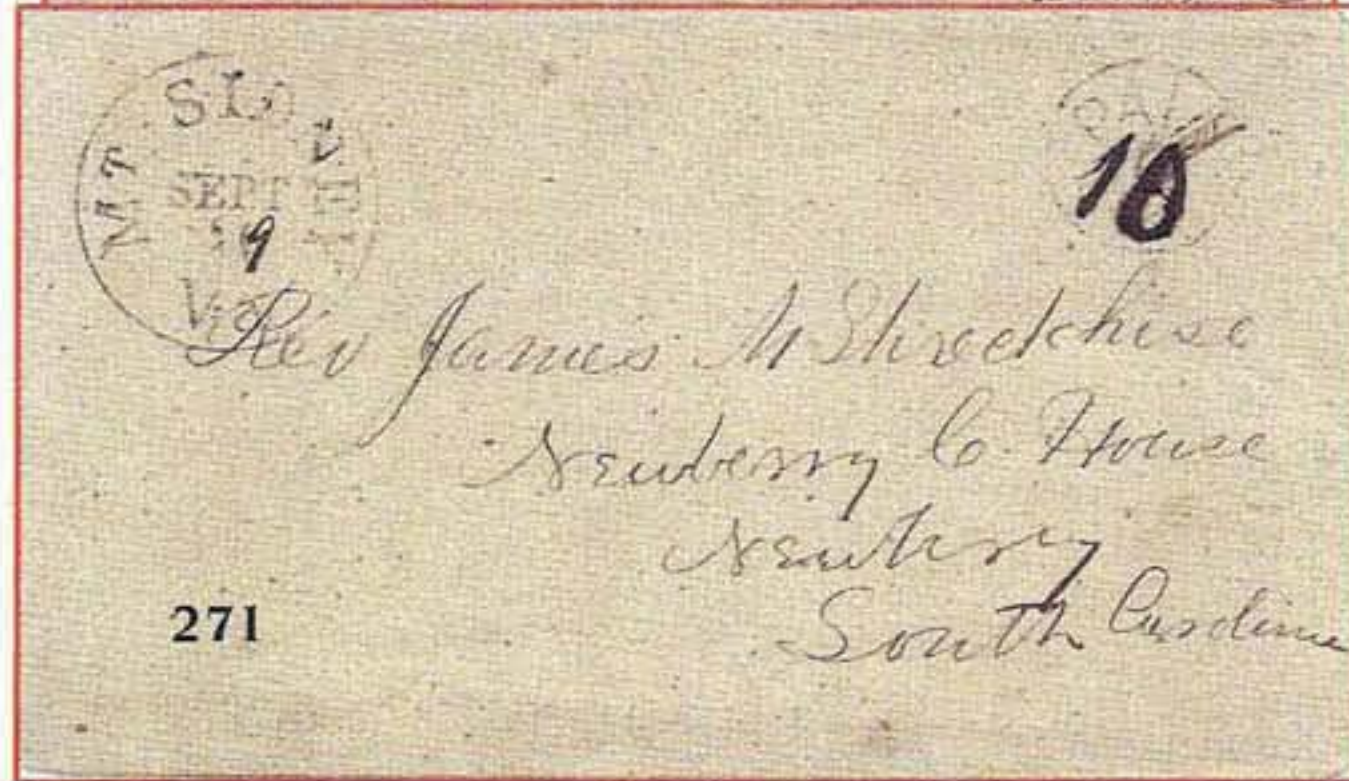 MT. SIDNEY
SEPT
9
Va
PAID
10
Rev James M Shreckhise
Newberry C. House
Newberry
South Carolina
271